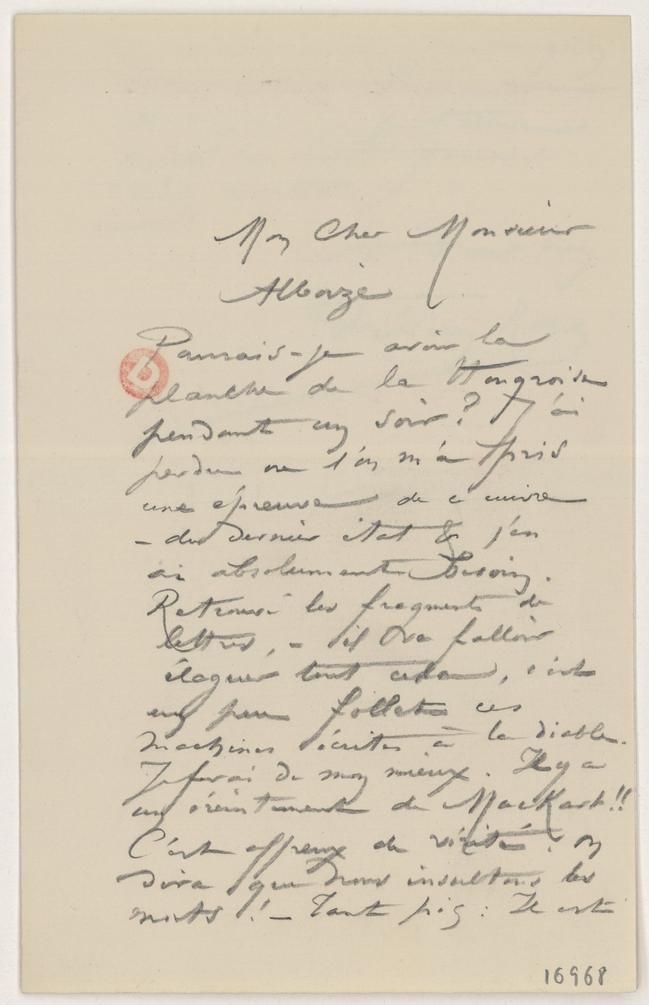 Mon Cher Monsieur
Alboize
Pourrais-je avoir la
planche de la Hongroise
pendant un soir ? J'ai
perdu ou l'on m'a pris
une épreuve de ce cuivre
– du dernier état & j'en
ai absolument besoin.
Retrouvé les fragments de
lettres, – il va falloir
élaguer tout cela, c'est
un peu follet ces
machines écrites à la diable.
Je ferai de mon mieux. Il y a
un éreintement de MacKart !!
C'est affreux de vérité ! on
dira que nous insultons les
morts ! – Tant pis : Il est
16968